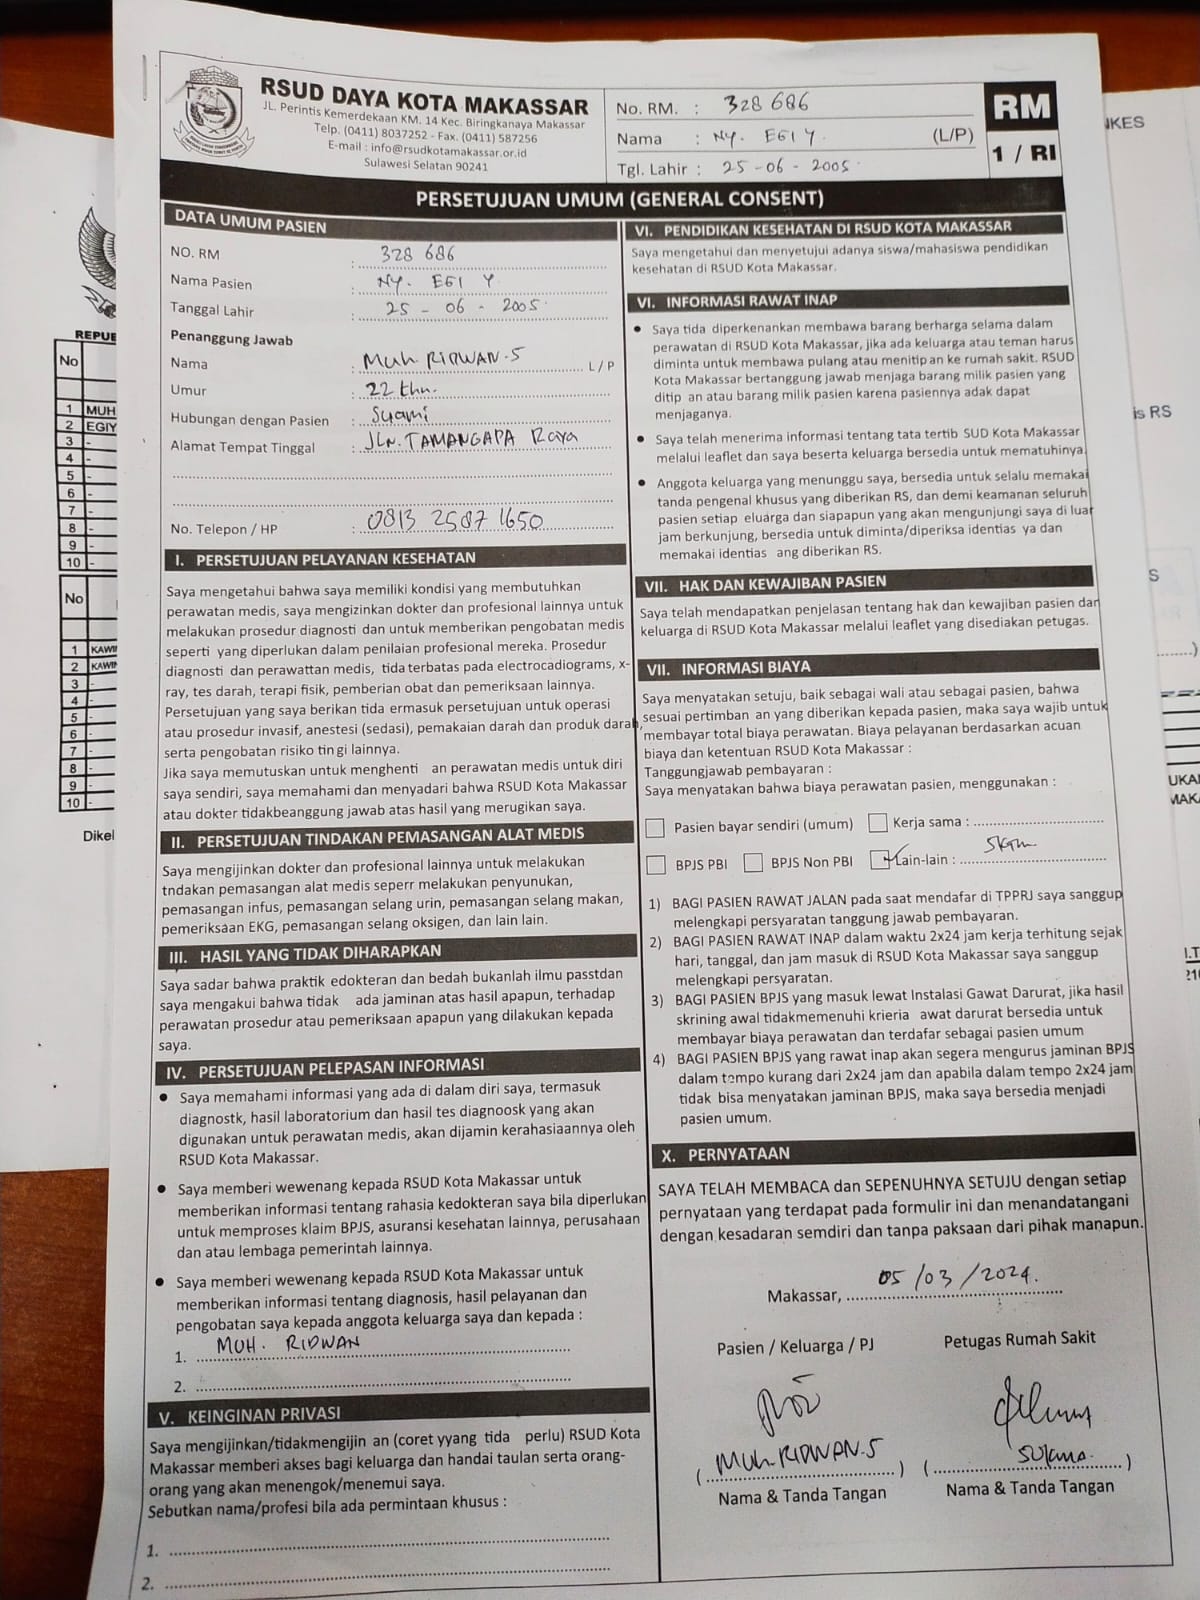 RSUD DAYA KOTA MAKASSAR
JL. Perintis Kemerdekaan KM. 14 Kec. Biringkanaya Makassar
Telp. (0411) 8037252 - Fax. (0411) 587256
E-mail : info@rsudkotamakassar.or.id
Sulawesi Selatan 90241
No. RM. : 328 686
Nama : NY. EGI Y. (L/P)
Tgl. Lahir : 25 - 06 - 2005
RM
1 / RI
PERSETUJUAN UMUM (GENERAL CONSENT)
DATA UMUM PASIEN
NO. RM : 328 686
Nama Pasien : NY. EGI Y
Tanggal Lahir : 25 - 06 - 2005
Penanggung Jawab
Nama : Muh. RIDWAN.S L / P
Umur : 22 thn.
Hubungan dengan Pasien : Suami
Alamat Tempat Tinggal : JLN. TAMANGAPA Raya
No. Telepon / HP : 0813 2587 1650
I. PERSETUJUAN PELAYANAN KESEHATAN
Saya mengetahui bahwa saya memiliki kondisi yang membutuhkan
perawatan medis, saya mengizinkan dokter dan profesional lainnya untuk
melakukan prosedur diagnosti dan untuk memberikan pengobatan medis
seperti yang diperlukan dalam penilaian profesional mereka. Prosedur
diagnosti dan perawattan medis, tida terbatas pada electrocadiograms, x-
ray, tes darah, terapi fisik, pemberian obat dan pemeriksaan lainnya.
Persetujuan yang saya berikan tida ermasuk persetujuan untuk operasi
atau prosedur invasif, anestesi (sedasi), pemakaian darah dan produk darah,
serta pengobatan risiko tin gi lainnya.
Jika saya memutuskan untuk menghenti an perawatan medis untuk diri
saya sendiri, saya memahami dan menyadari bahwa RSUD Kota Makassar
atau dokter tidakbeanggung jawab atas hasil yang merugikan saya.
II. PERSETUJUAN TINDAKAN PEMASANGAN ALAT MEDIS
Saya mengijinkan dokter dan profesional lainnya untuk melakukan
tndakan pemasangan alat medis seperr melakukan penyunukan,
pemasangan infus, pemasangan selang urin, pemasangan selang makan,
pemeriksaan EKG, pemasangan selang oksigen, dan lain lain.
III. HASIL YANG TIDAK DIHARAPKAN
Saya sadar bahwa praktik edokteran dan bedah bukanlah ilmu passtdan
saya mengakui bahwa tidak ada jaminan atas hasil apapun, terhadap
perawatan prosedur atau pemeriksaan apapun yang dilakukan kepada
saya.
IV. PERSETUJUAN PELEPASAN INFORMASI
● Saya memahami informasi yang ada di dalam diri saya, termasuk
diagnostk, hasil laboratorium dan hasil tes diagnoosk yang akan
digunakan untuk perawatan medis, akan dijamin kerahasiaannya oleh
RSUD Kota Makassar.
● Saya memberi wewenang kepada RSUD Kota Makassar untuk
memberikan informasi tentang rahasia kedokteran saya bila diperlukan
untuk memproses klaim BPJS, asuransi kesehatan lainnya, perusahaan
dan atau lembaga pemerintah lainnya.
● Saya memberi wewenang kepada RSUD Kota Makassar untuk
memberikan informasi tentang diagnosis, hasil pelayanan dan
pengobatan saya kepada anggota keluarga saya dan kepada :
1. MUH. RIDWAN
2.
V. KEINGINAN PRIVASI
Saya mengijinkan/tidakmengijin an (coret yyang tida perlu) RSUD Kota
Makassar memberi akses bagi keluarga dan handai taulan serta orang-
orang yang akan menengok/menemui saya.
Sebutkan nama/profesi bila ada permintaan khusus :
1.
2.
VI. PENDIDIKAN KESEHATAN DI RSUD KOTA MAKASSAR
Saya mengetahui dan menyetujui adanya siswa/mahasiswa pendidikan
kesehatan di RSUD Kota Makassar.
VI. INFORMASI RAWAT INAP
● Saya tida diperkenankan membawa barang berharga selama dalam
perawatan di RSUD Kota Makassar, jika ada keluarga atau teman harus
diminta untuk membawa pulang atau menitip an ke rumah sakit. RSUD
Kota Makassar bertanggung jawab menjaga barang milik pasien yang
ditip an atau barang milik pasien karena pasiennya adak dapat
menjaganya.
● Saya telah menerima informasi tentang tata tertib SUD Kota Makassar
melalui leaflet dan saya beserta keluarga bersedia untuk mematuhinya.
● Anggota keluarga yang menunggu saya, bersedia untuk selalu memakai
tanda pengenal khusus yang diberikan RS, dan demi keamanan seluruh
pasien setiap eluarga dan siapapun yang akan mengunjungi saya di luar
jam berkunjung, bersedia untuk diminta/diperiksa identias ya dan
memakai identias ang diberikan RS.
VII. HAK DAN KEWAJIBAN PASIEN
Saya telah mendapatkan penjelasan tentang hak dan kewajiban pasien dan
keluarga di RSUD Kota Makassar melalui leaflet yang disediakan petugas.
VII. INFORMASI BIAYA
Saya menyatakan setuju, baik sebagai wali atau sebagai pasien, bahwa
sesuai pertimban an yang diberikan kepada pasien, maka saya wajib untuk
membayar total biaya perawatan. Biaya pelayanan berdasarkan acuan
biaya dan ketentuan RSUD Kota Makassar :
Tanggungjawab pembayaran :
Saya menyatakan bahwa biaya perawatan pasien, menggunakan :
Pasien bayar sendiri (umum) Kerja sama :
BPJS PBI BPJS Non PBI Lain-lain : SKTM
1) BAGI PASIEN RAWAT JALAN pada saat mendafar di TPPRJ saya sanggup
melengkapi persyaratan tanggung jawab pembayaran.
2) BAGI PASIEN RAWAT INAP dalam waktu 2x24 jam kerja terhitung sejak
hari, tanggal, dan jam masuk di RSUD Kota Makassar saya sanggup
melengkapi persyaratan.
3) BAGI PASIEN BPJS yang masuk lewat Instalasi Gawat Darurat, jika hasil
skrining awal tidakmemenuhi krieria awat darurat bersedia untuk
membayar biaya perawatan dan terdafar sebagai pasien umum
4) BAGI PASIEN BPJS yang rawat inap akan segera mengurus jaminan BPJS
dalam tempo kurang dari 2x24 jam dan apabila dalam tempo 2x24 jam
tidak bisa menyatakan jaminan BPJS, maka saya bersedia menjadi
pasien umum.
X. PERNYATAAN
SAYA TELAH MEMBACA dan SEPENUHNYA SETUJU dengan setiap
pernyataan yang terdapat pada formulir ini dan menandatangani
dengan kesadaran semdiri dan tanpa paksaan dari pihak manapun.
Makassar, 05/03/2024.
Pasien / Keluarga / PJ Petugas Rumah Sakit
(MUH. RIDWAN.S) (Sukma.)
Nama & Tanda Tangan Nama & Tanda Tangan
REPUE
No
1 MUH
2 EGIY
3 -
4 -
5 -
6 -
7 -
8 -
9 -
10 -
No
1 KAWIN
2 KAWIN
3 -
4 -
5 -
6 -
7 -
8 -
9 -
10 -
Dikel
NKES
is RS
S
UKA
MAKA